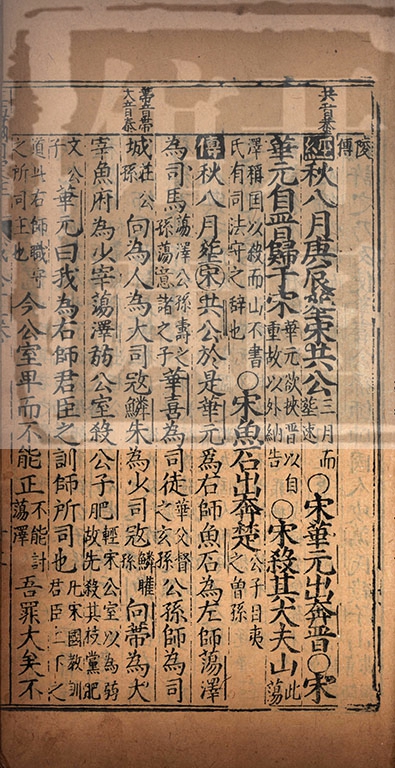 共音恭
經秋八月庚辰葬宋共公三月而葬速〇宋華元出奔晋〇宋
華元自晋歸于宋華元欲挾晋以自重故以外納告〇宋殺其大夫山此蕩
澤稱国以殺而山不書氏有司法守之辞也〇宋魚石出奔楚公子目夷之曾孫
傳秋八月葬宋共公於是華元為右師魚石為左師蕩澤
為司馬蕩澤公孫壽之孫蕩意諸之子華喜為司徒華父督之玄孫公孫師為司
大音泰
城莊公孫向為人為大司寇鱗朱為少司寇鱗矔孫向帶為大
宰魚府為少宰蕩澤弱公室殺公子肥輕宋公室以為弱故先殺其枝黨肥
文公子華元曰我為右師君臣之訓師所司也凡宋國教訓君臣上下之
道與右師職守之所司主也今公室卑而不能正不能討蕩澤吾罪大矣不